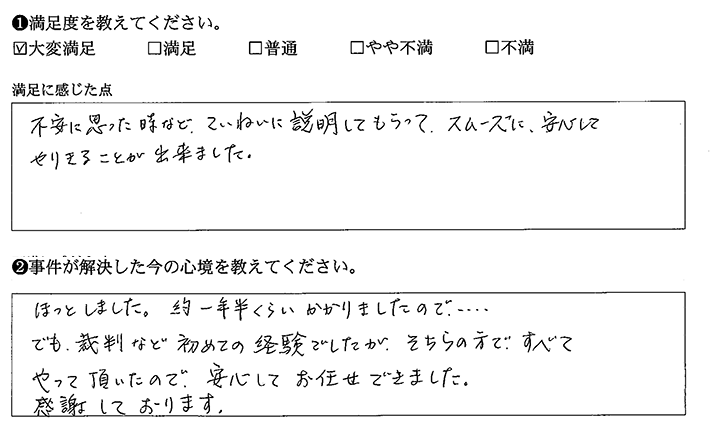 ❶満足度を教えてください。
☑大変満足 □満足 □普通 □やや不満 □不満
満足に感じた点
不安に思った時など、ていねいに説明してもらって、スムーズに、安心して
やりきることが出来ました。
❷事件が解決した今の心境を教えてください。
ほっとしました。約一年半くらいかかりましたので、‥‥
でも、裁判など初めての経験でしたが、そちらの方で、すべて
やって頂いたので、安心してお任せできました。
感謝しております。